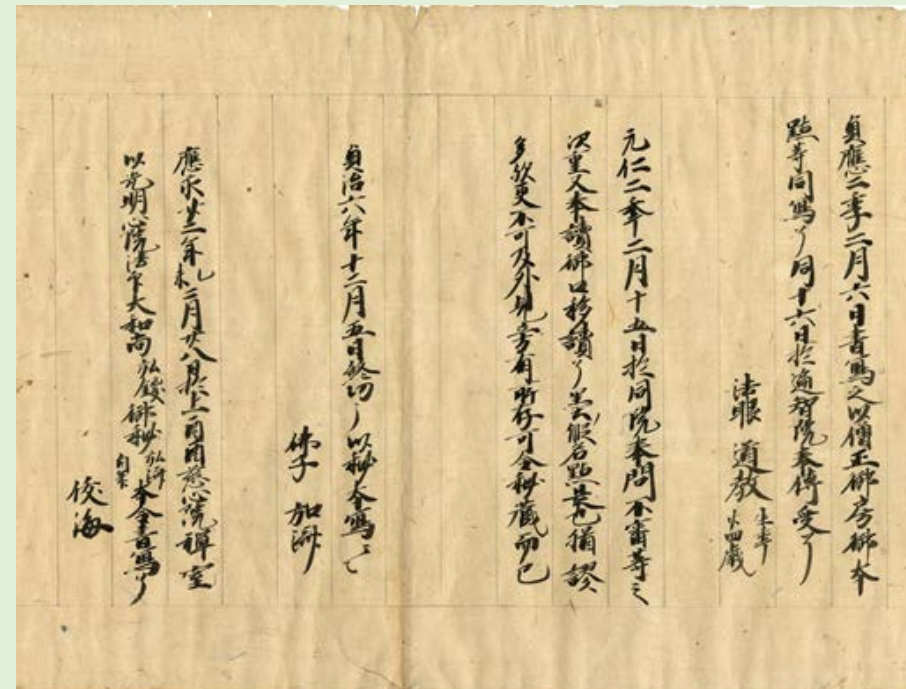 貞應二年二月六日書寫之以僧正御房御本
點等同寫了同十六日於遍智院奉傳受了
法眼道教 生年廿四歲
元仁二年二月十五日於同院奉問不審等之
次重又奉讀御口移讀了墨假名點是也猶謬
多欤更不可及外見旁有所存可令秘藏而已
貞治六年十二月五日終功了以秘本寫之
佛子
應永廿二年乙未二月廿八日於上南禪室
以光明院法印大和尚弘 御秘本令書寫了
俊海